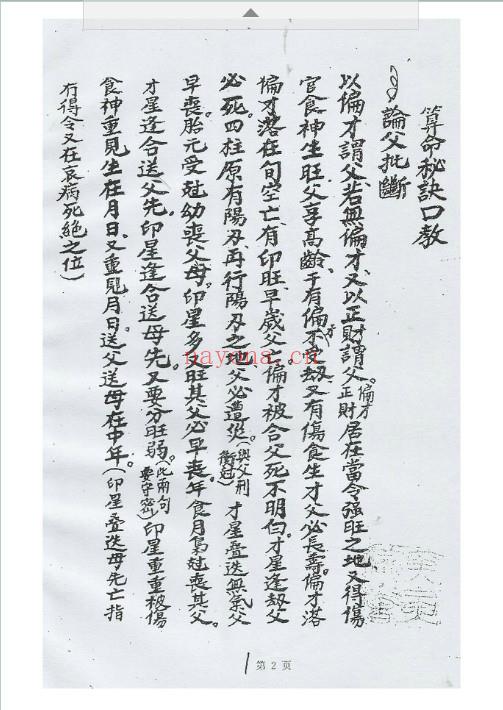 算命秘訣口教
論父批斷
以偏才謂父若無偏才又以正財謂父。偏才正財居在當令強旺之地又得傷
官食神生旺父享高齡。干有偏才不見劫又有傷食生才父必長壽。偏才落
偏才落在旬空亡有印旺早歲父亡。偏才被合父死不明白。才星逢劫父
必死。四柱原有陽刃再行陽刃之地父必遭災(與父刑衝尅)才星疊迭無氣父
早喪胎元受尅幼喪父母。印星多又旺其父必早喪年食月梟尅喪其父。
才星逢合送父先。印星逢合送母先。又要分旺弱。(此兩句要守密)印星重重被傷
食神重見生在月日。又重見月日。送父送母在中年。(印星叠迭母先亡指
冇得令又在衰病死絕之位)
nayona.cn
1
第 2 页